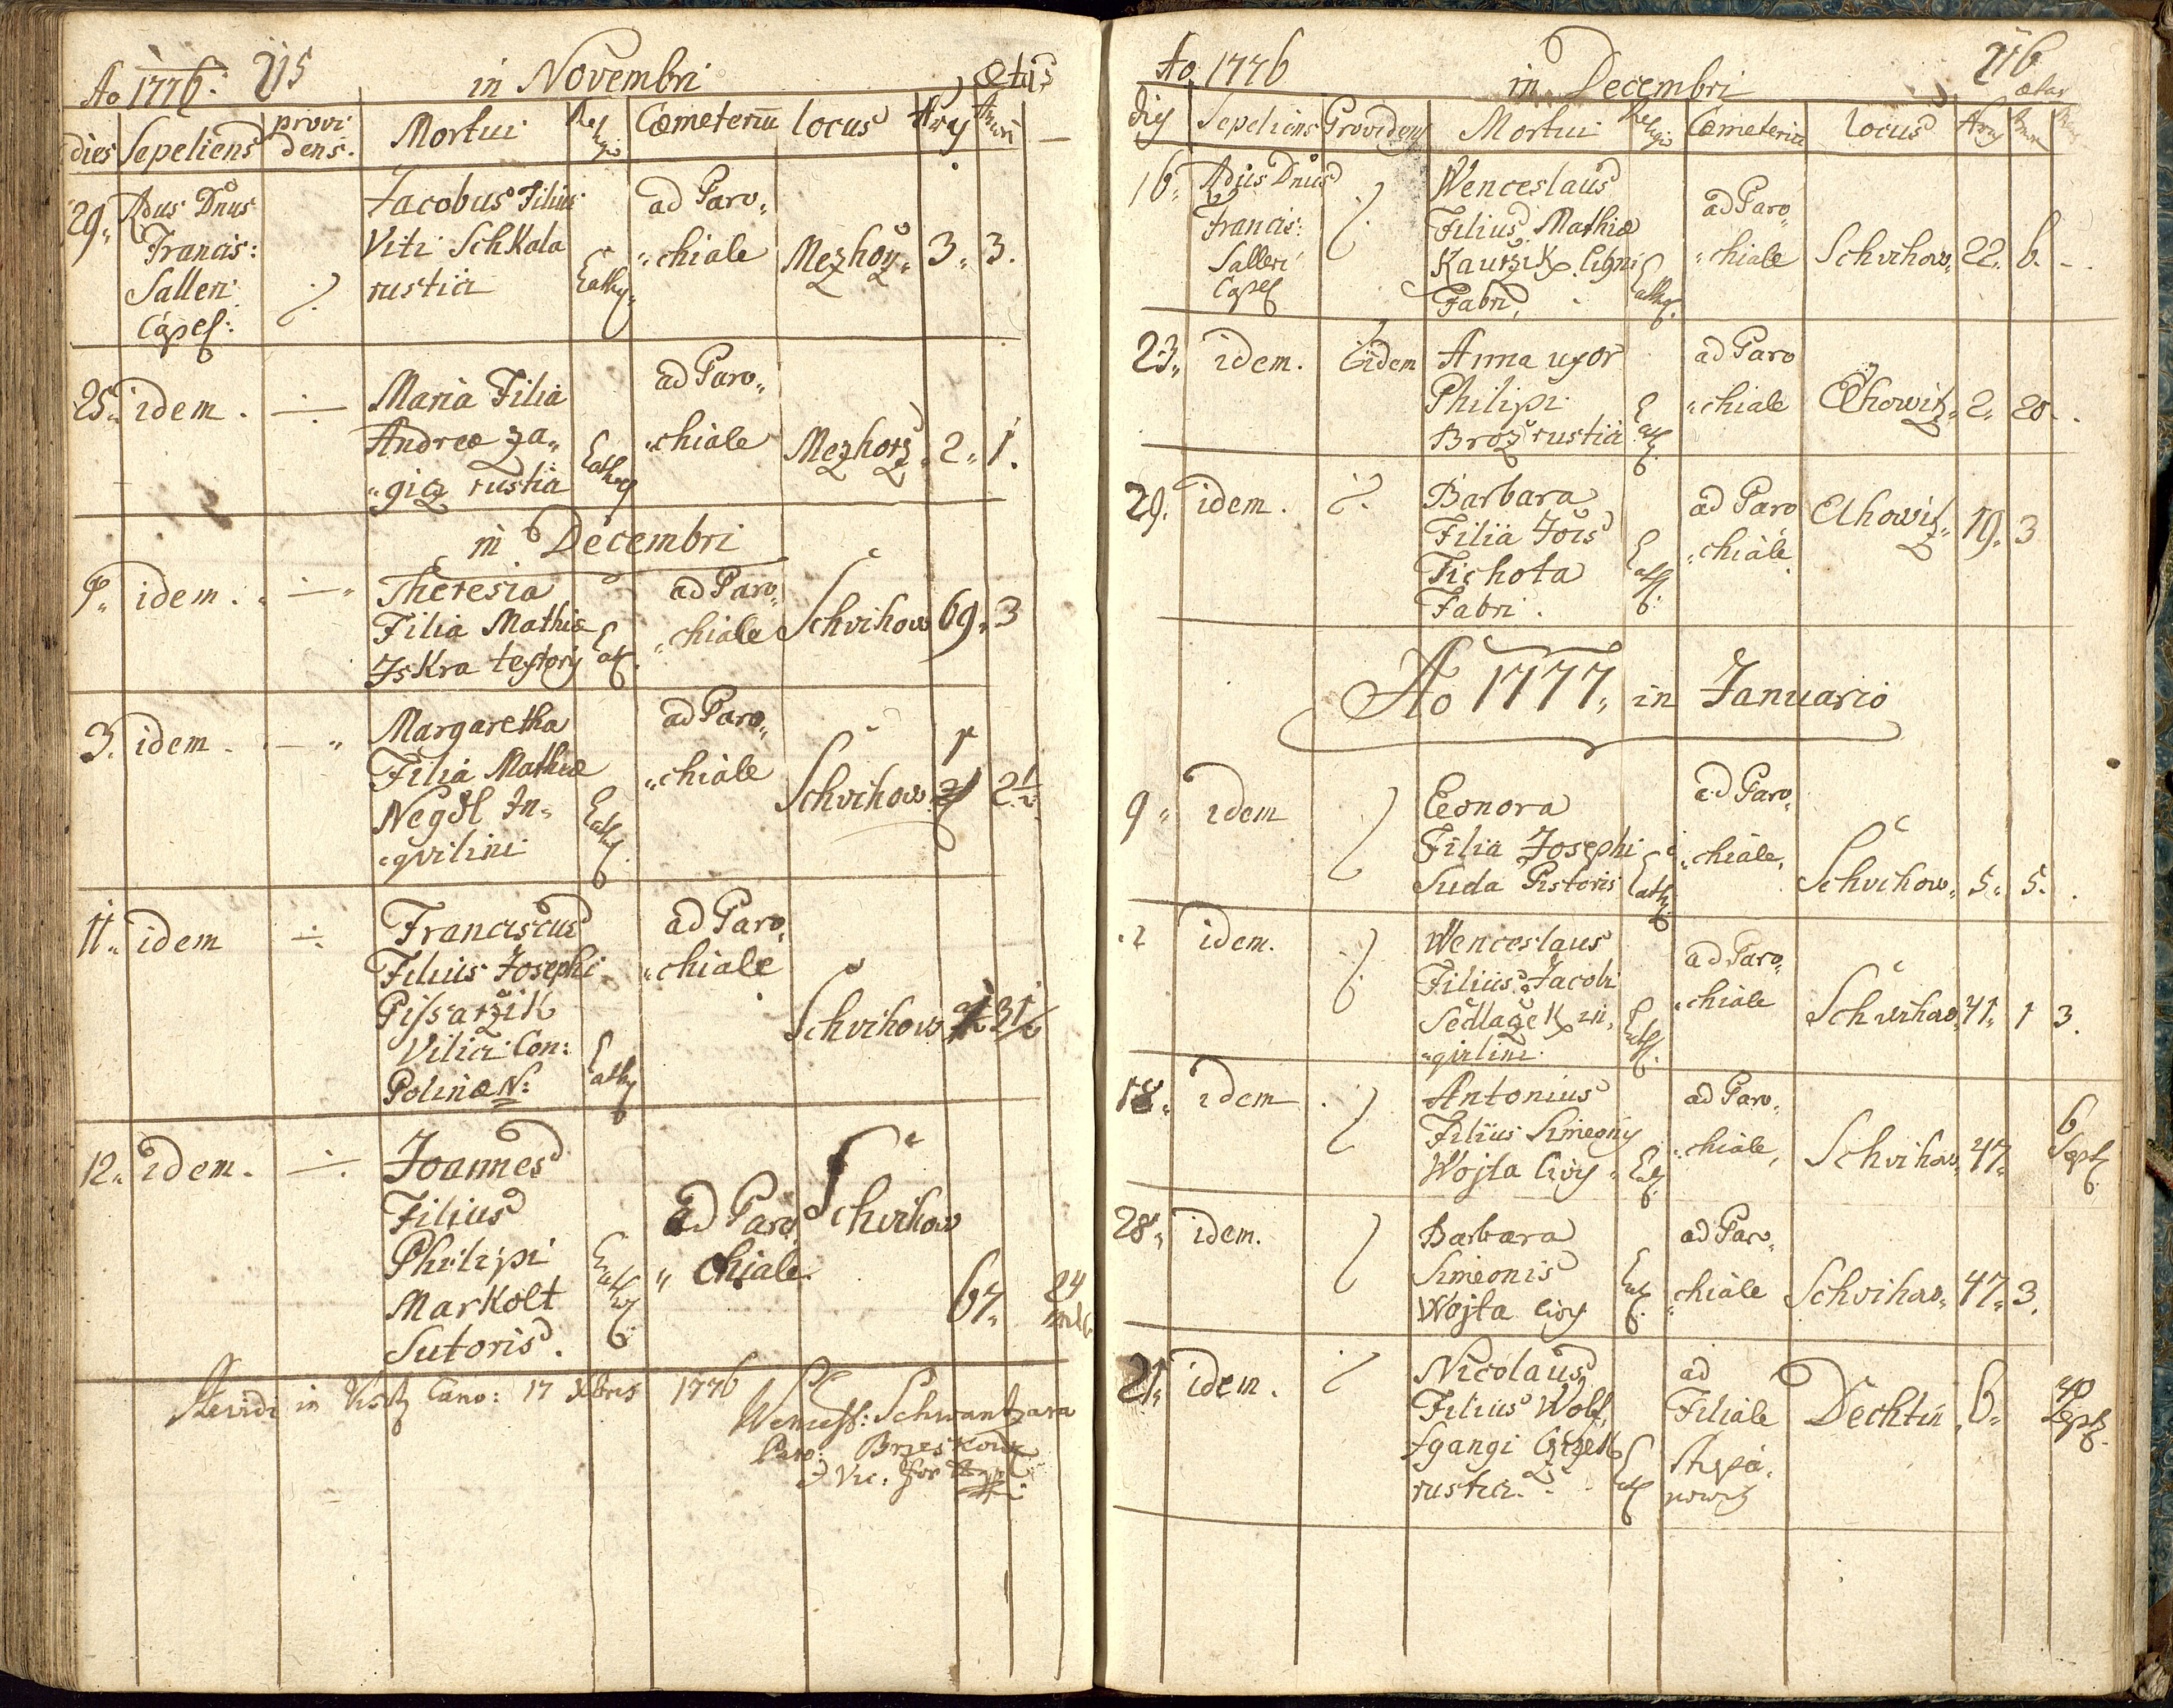 Ao 1776. 215 in Novembri ætas
dies Sepeliens provi Mortui Relgio Cœmeteriū locus Arcy Anni
dens.
29. Adus Dnus Jacobus Filius ad Paro„
Francis: Viti SchKala Cath „chiale Mezhoř„ 3„ 3.
Salleri ·/. rustici
Capel:
25„ idem. ÷ Maria Filia ad Paro„
Andreæ za„ Cath „chiale Mezhorz„ 2„ 1.
„gicz rustici
in Decembri
idem. ÷ Theresia ad Paro„
Filia Mathiæ „chiale Schvihow 69„ 3
Iskra textoris Cat.
3. idem. — „ Margaretha ad Paro„
Filia Mathiæ „chiale Schvihow 2½
Negdl In„ Cath.
„qvilini
11„ idem ÷ Franciscus ad Paro„
Filius Josephi „chiale
Pissarzik Schvihow 3½
Vilici Con: Cath
Polinæ N:
12„ idem. ÷ Joannes Schvihow
Filius ad Paro„
Philipi Cath „chiale. 67„ 24
Markolt
Sutoris.
Revidi in Visit Cano: 17 Xbris 1776
Wencesl: Schwantzara
Paro: Brzeskowiz
Vic: for
Ao 1776 in Decembri 216
ætas
dies Sepeliens Providens Mortui Relgio Cœmeteriū locus Arcy Anni
16„ Adus Dnus ·/. Wenceslaus ad Paro„
Francis: Filius Mathiæ „chiale Schvihow„ 22„ 6. -.
Salleri Kaurzik Ligni Cath.
Capel Fabri,
23„ idem. idem Anna uxor ad Paro
Philipi Cat. „chiale Chowitz„ 2„ 20.
Broz rustici
29. idem. ·/. Barbara ad Paro Chowitz„ 19„ 3
Filia Jois „chiale
Tichota Cath.
Fabri.
Ao 1777„ in Januario
9„ idem ·/. Leonora ad Paro„
Filia Josephi „chiale„
Suda Pistoris Cath. Schvihow„ 5„ 5.
.2 idem. ·/. Wenceslaus ad Paro„
Filius Jacobi „chiale Schvihow„ 41„ 1 3.
Sedlaček in„ Cath.
„qvilini
18„ idem. ·/. Antonius ad Paro„ 6
Filius Simeonis „chiale„ Schvihow„ 47„ Sept.
Wojta Civis Cat.
28„ idem. ·/. Barbara ad Paro„
Simeonis Cat. „chiale Schvihow„ 47„ 3.
Wojta Civis
21„ idem. ·/. Nicolaus ad 40
Filius Wolf„ Filiale Dechtin„ 6„ Sept.
fgangi Cath
rustici.